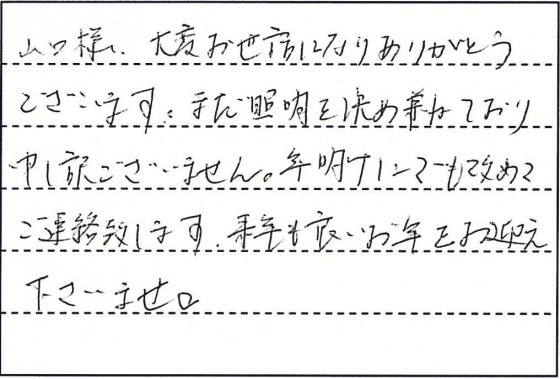 山口様、大変お世話になりありがとう
ございます。まだ照明を決め兼ねており
申し訳ございません。年明けにでも改めて
ご連絡致します。来年も良いお年をお迎え
下さいませ。